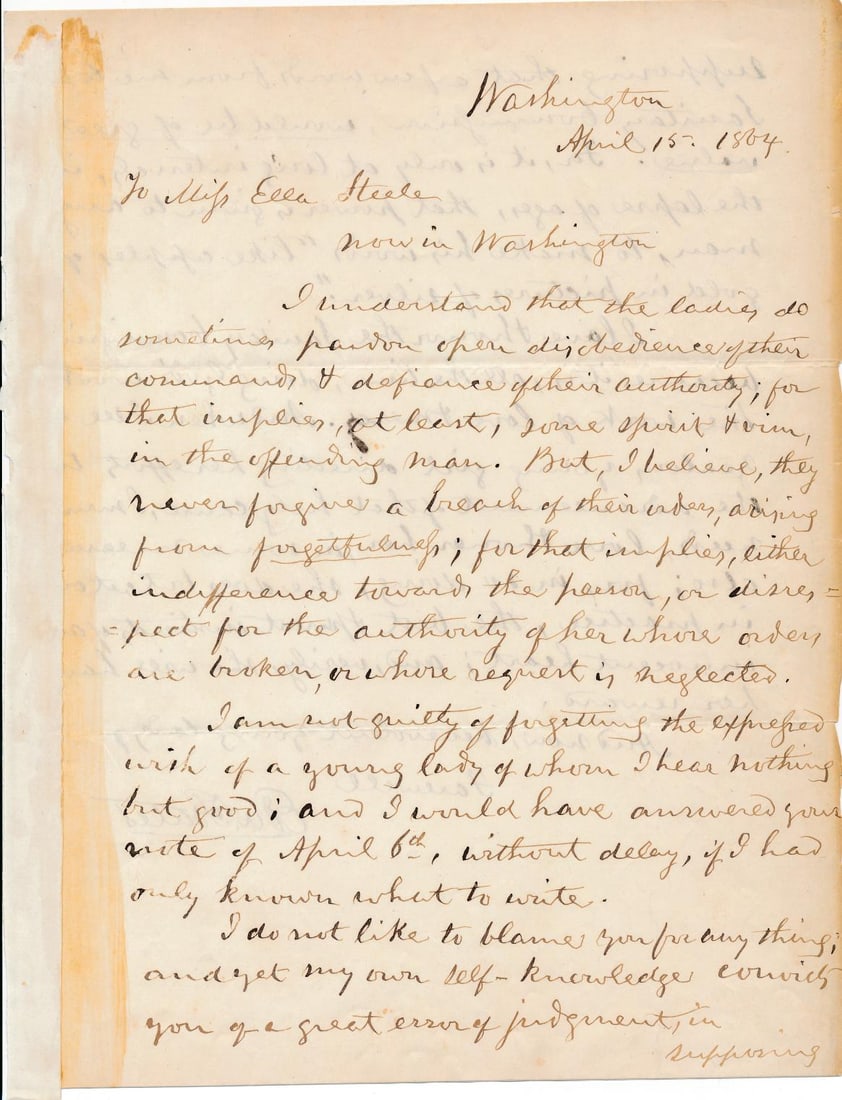 Washington
April 15. 1864.
To Miss Ella Steele
now in Washington
I understand that the ladies do
sometimes pardon open disobedience of their
commands & defiance of their authority; for
that implies, at least, some spirit & vim,
in the offending man. But, I believe, they
never forgive a breach of their orders, arising
from forgetfulness; for that implies, either
indifference towards the person, or disres=
=pect for the authority of her whose orders
are broken, or whose request is neglected.
I am not guilty of forgetting the expressed
wish of a young lady of whom I hear nothing
but good; and I would have answered your
note of April 6th, without delay, if I had
only known what to write.
I do not like to blame you for any thing;
and yet my own self-knowledge convicts
you of a great error of judgment, in
supposing